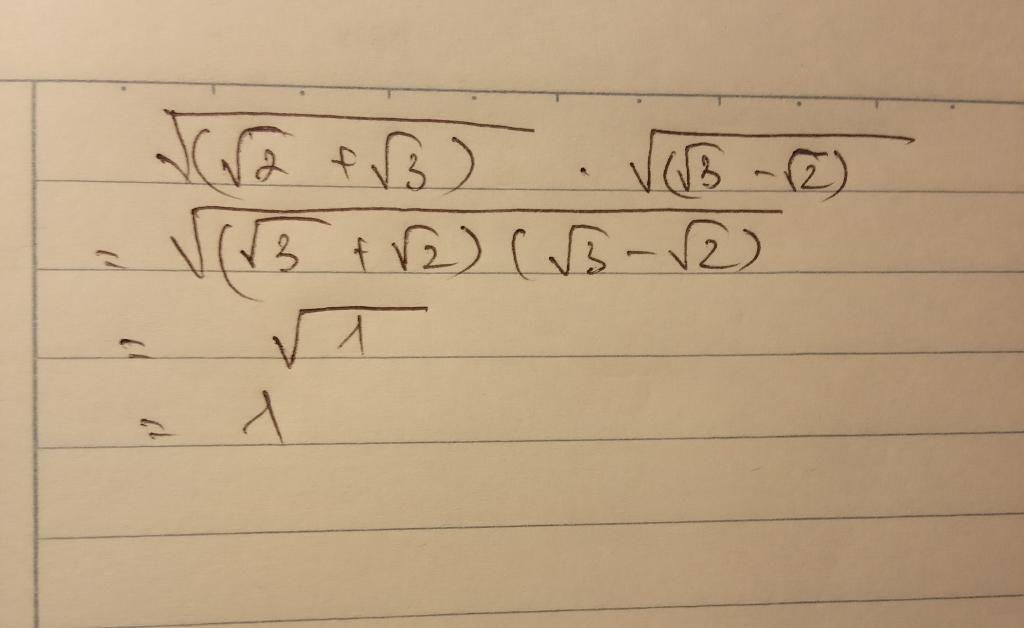 √(√2 + √3) · √(√3 - √2)
= √(√3 + √2) (√3 - √2)
= √1
= 1